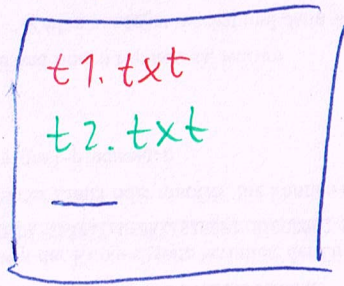 t1.txt
t2.txt